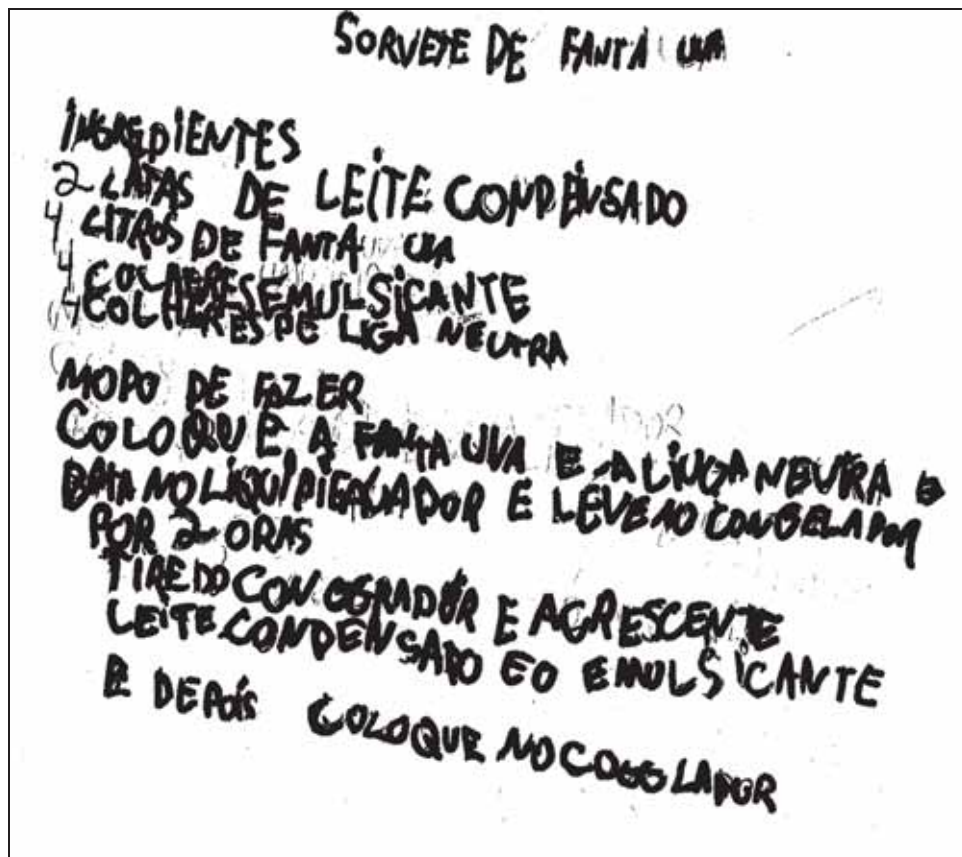 SORVETE DE FANTA UVA
INGREDIENTES
2 LATAS DE LEITE CONDENSADO
4 LITROS DE FANTA UVA
4 COLHERES EMULSICANTE
4 COLHERES DE LIGA NEUTRA
MODO DE FAZER
COLOQUE A FANTA UVA E A LIUGA NEUTRA E
BATA NO LIQUIDIFICADOR E LEVE NO CONGELADOR
POR 2 ORAS
TIRE DO CONGERADOR E AGRESCENTE
LEITE CONDENSADO E O EMULSICANTE
E DEPOIS COLOQUE NO COGELADOR